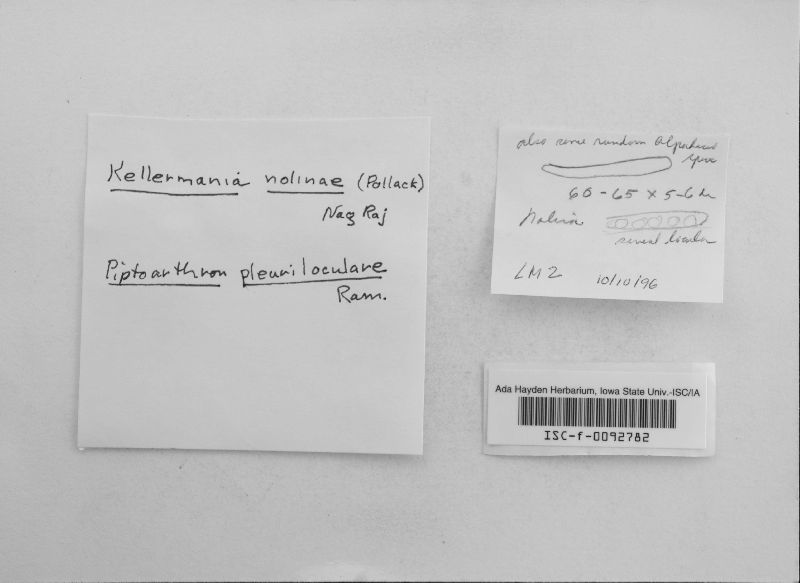 Kellermania nolinae (Pollack)
Nag Raj
Piptoarthron pleuriloculare
Ram.
also some random
60-65 x 5-6 u
Nolina
several locular
LM2 10/10/96
Ada Hayden Herbarium, Iowa State Univ.-ISC/IA
ISC-f-0092782